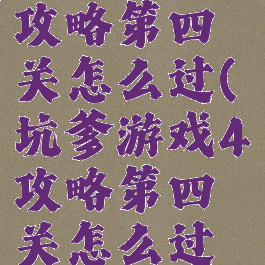 攻略第四
关怎么过(
坑爹游戏4
攻略第四
关怎么过